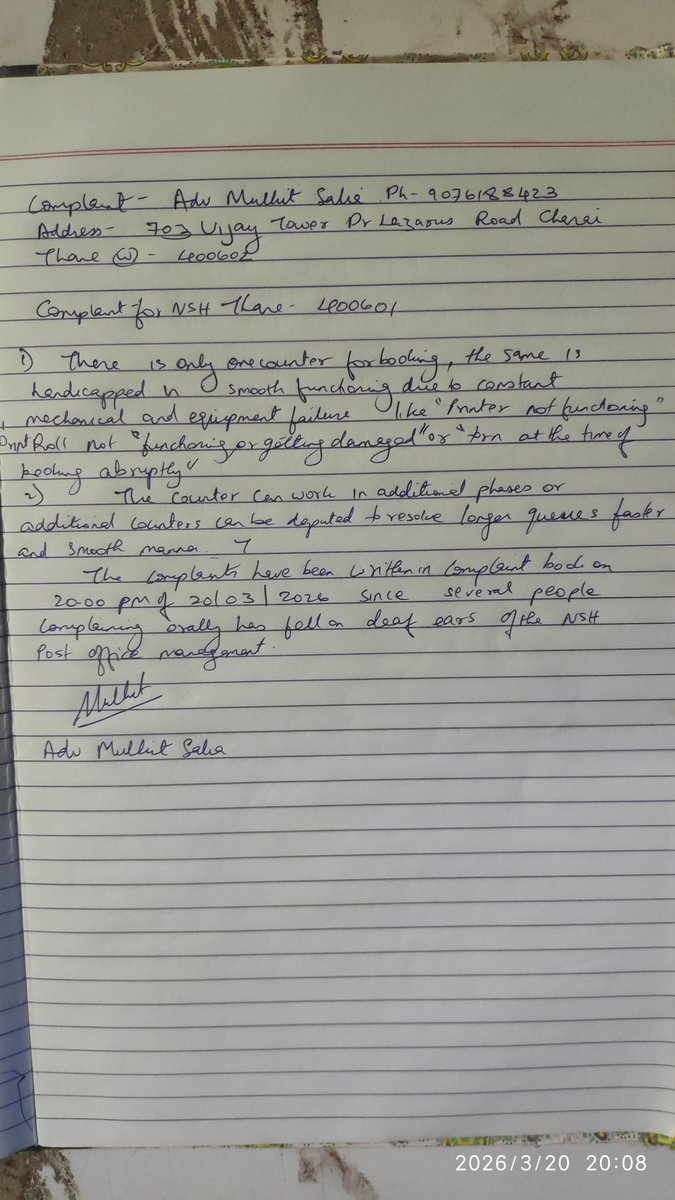 Complaint - Adv Mulkit Salia Ph - 9076188423
Address - 703 Vijay Tower Dr Lazarus Road Charai
Thane (W) - 400602
Complaint for NSH Thane - 400601
1) There is only one counter for booking, the same is
handicapped in smooth functioning due to constant
mechanical and equipment failure like "Printer not functioning"
Print Roll not "functioning or getting damaged" or "torn at the time of
booking abruptly"
2) The counter can work in additional phases or
additional counters can be deputed to resolve longer queues faster
and smooth manner
The complaints have been written in complaint book on
20.00 pm of 20/03/2026 since several people
complaining orally has fell on deaf ears of the NSH
Post office management.
Mulkit
Adv Mulkit Salia
2026/3/20 20:08